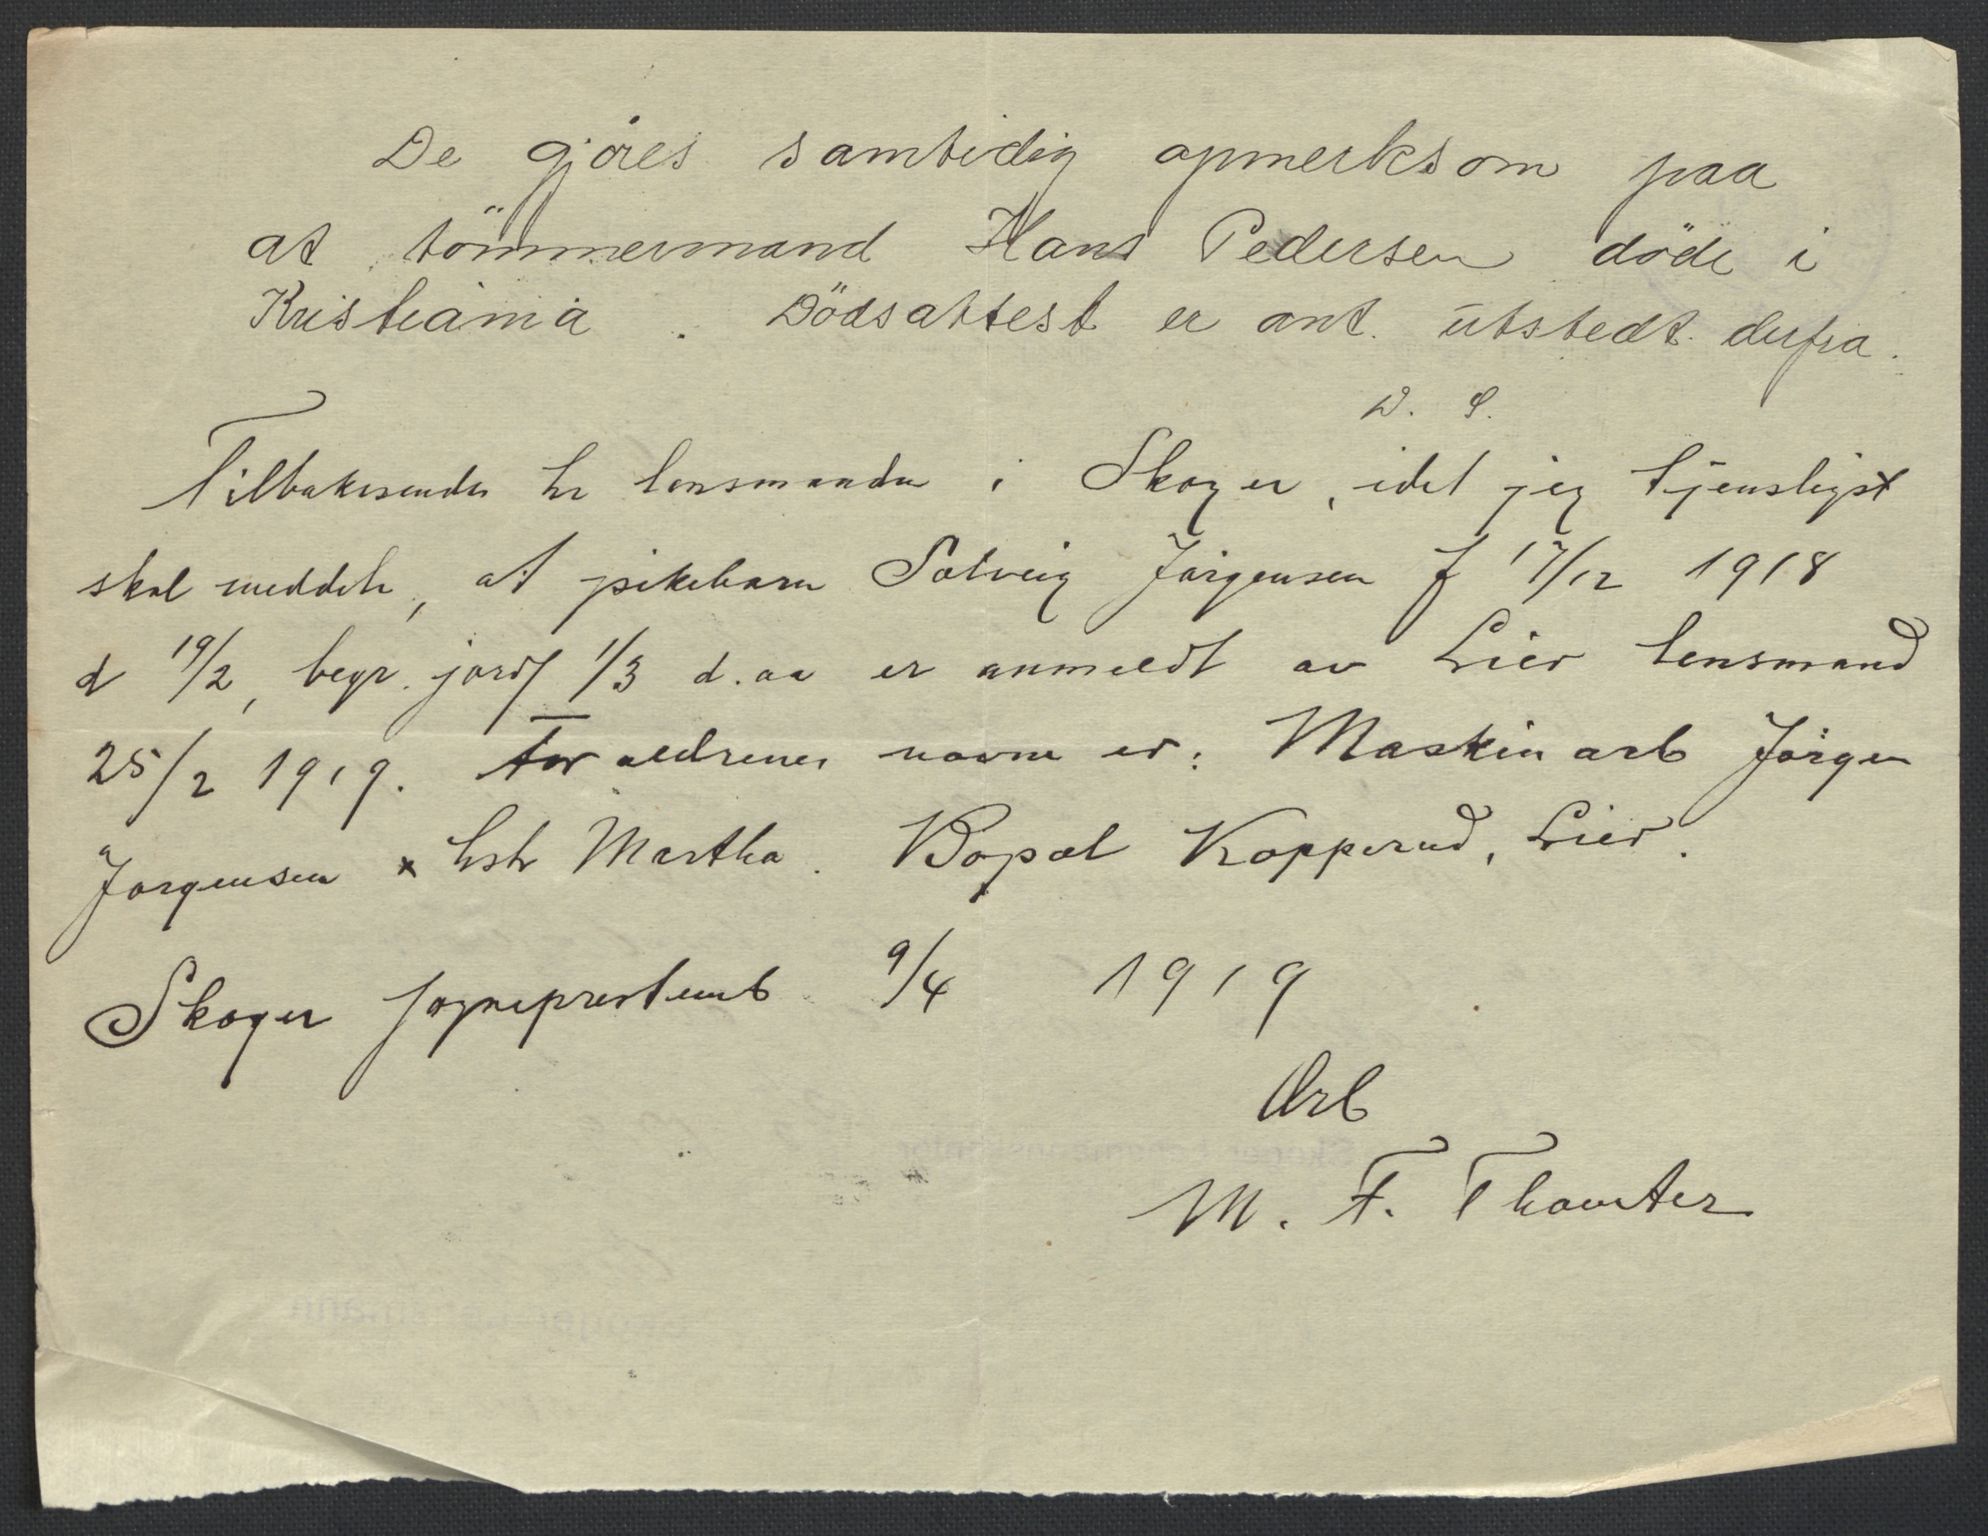 De gjöres samtidig opmerksom paa
at tömmermand Hans Pedersen döde i
Kristiania. Dödsattest er ant. utstedt derfra.
D. S.
Tilbakesendes hr lensmanden i Skoger, idet jeg tjensligst
skal meddele, at pikebarn Solveig Jörgensen f 17/12 1918
d 19/2, begr. jordf 1/3 d. aa er anmeldt av Lier lensmand
25/2 1919. Foraeldrenes navne er: Maskinarb Jörgen
Jörgensen x hstr Martha. Bopæl Kopperud, Lier.
Skoger sogneprestemb 9/4 1919
Ærb
M. F.